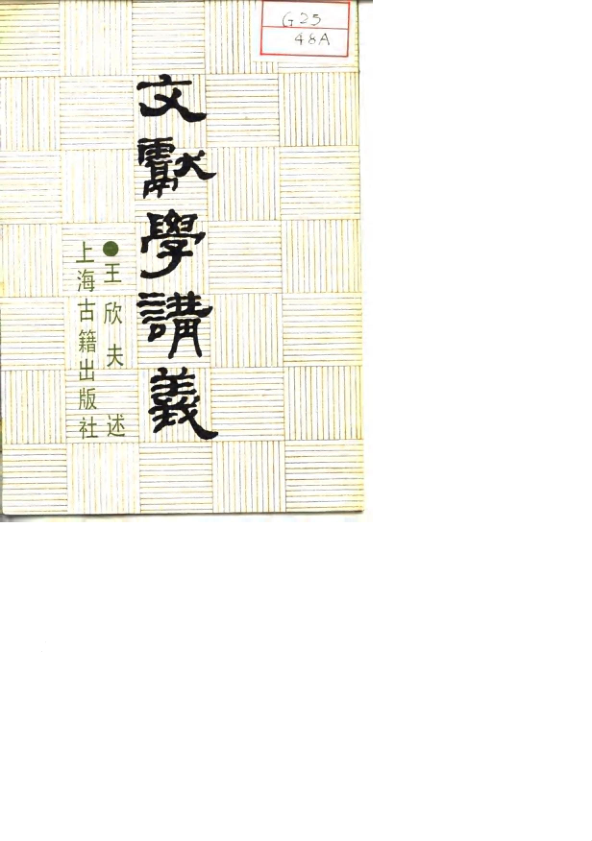 G25
48A
文獻學講義
●王欣夫 述
上海古籍出版社